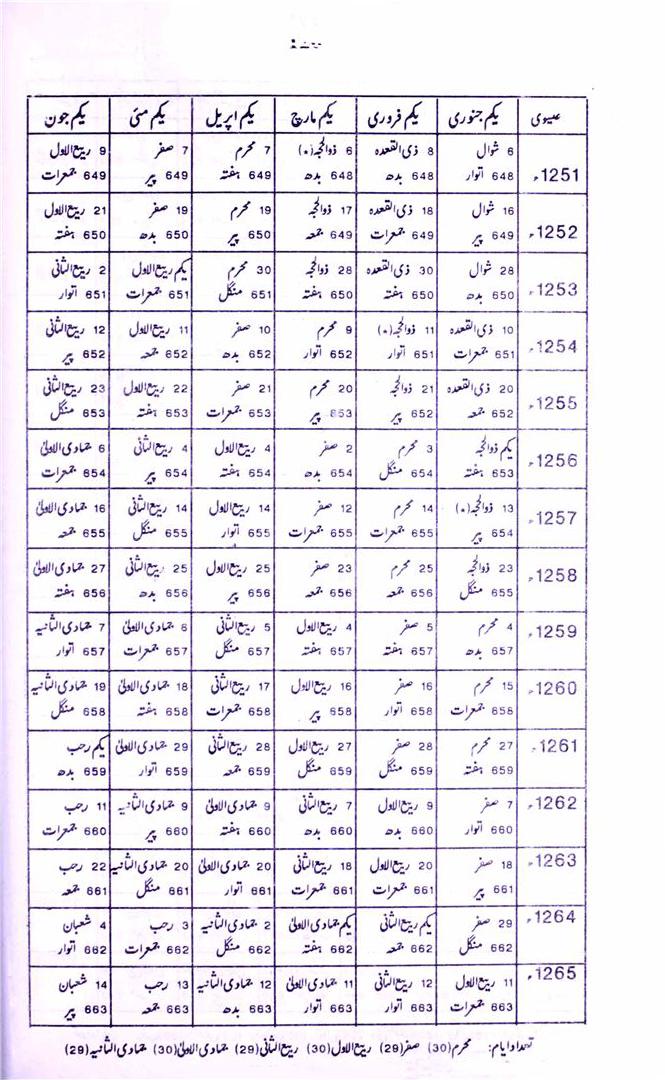 عیسوی یکم جنوری یکم فروری یکم مارچ یکم اپریل یکم مئی یکم جون
6 شوال 8 ذی القعدہ 6 ذوالحجہ (*) 7 محرم 7 صفر 9 ربیع الاول
1251ء 648 اتوار 648 بدھ 648 بدھ 649 ہفتہ 649 پیر 649 جمعرات
16 شوال 18 ذی القعدہ 17 ذوالحجہ 19 محرم 19 صفر 21 ربیع الاول
1252ء 649 پیر 649 جمعرات 649 جمعہ 650 پیر 650 بدھ 650 ہفتہ
28 شوال 30 ذی القعدہ 28 ذوالحجہ 30 محرم یکم ربیع الاول 2 ربیع الثانی
1253ء 650 بدھ 650 ہفتہ 650 ہفتہ 651 منگل 651 جمعرات 651 اتوار
10 ذی القعدہ 11 ذوالحجہ (*) 9 محرم 10 صفر 11 ربیع الاول 12 ربیع الثانی
1254ء 651 جمعرات 651 اتوار 652 اتوار 652 بدھ 652 جمعہ 652 پیر
20 ذی القعدہ 21 ذوالحجہ 20 محرم 21 صفر 22 ربیع الاول 23 ربیع الثانی
1255ء 652 جمعہ 652 پیر 653 پیر 653 جمعرات 653 ہفتہ 653 منگل
یکم ذوالحجہ 3 محرم 2 صفر 4 ربیع الاول 4 ربیع الثانی 6 جمادی الاولیٰ
1256ء 653 ہفتہ 654 منگل 654 بدھ 654 ہفتہ 654 پیر 654 جمعرات
13 ذوالحجہ (*) 14 محرم 12 صفر 14 ربیع الاول 14 ربیع الثانی 16 جمادی الاولیٰ
1257ء 654 پیر 655 جمعرات 655 جمعرات 655 اتوار 655 منگل 655 جمعہ
23 ذوالحجہ 25 محرم 23 صفر 25 ربیع الاول 25 ربیع الثانی 27 جمادی الاولیٰ
1258ء 655 منگل 656 جمعہ 656 جمعہ 656 پیر 656 بدھ 656 ہفتہ
4 محرم 5 صفر 4 ربیع الاول 5 ربیع الثانی 6 جمادی الاولیٰ 7 جمادی الثانیہ
1259ء 657 بدھ 657 ہفتہ 657 ہفتہ 657 منگل 657 جمعرات 657 اتوار
15 محرم 16 صفر 16 ربیع الاول 17 ربیع الثانی 18 جمادی الاولیٰ 19 جمادی الثانیہ
1260ء 658 جمعرات 658 اتوار 658 پیر 658 جمعرات 658 ہفتہ 658 منگل
27 محرم 28 صفر 27 ربیع الاول 28 ربیع الثانی 29 جمادی الاولیٰ یکم رجب
1261ء 659 ہفتہ 659 منگل 659 منگل 659 جمعہ 659 اتوار 659 بدھ
7 صفر 9 ربیع الاول 7 ربیع الثانی 9 جمادی الاولیٰ 9 جمادی الثانیہ 11 رجب
1262ء 660 اتوار 660 بدھ 660 بدھ 660 ہفتہ 660 پیر 660 جمعرات
18 صفر 20 ربیع الاول 18 ربیع الثانی 20 جمادی الاولیٰ 20 جمادی الثانیہ 22 رجب
1263ء 661 پیر 661 جمعرات 661 جمعرات 661 اتوار 661 منگل 661 جمعہ
29 صفر یکم ربیع الثانی یکم جمادی الاولیٰ 2 جمادی الثانیہ 3 رجب 4 شعبان
1264ء 662 منگل 662 جمعہ 662 ہفتہ 662 منگل 662 جمعرات 662 اتوار
11 ربیع الاول 12 ربیع الثانی 11 جمادی الاولیٰ 12 جمادی الثانیہ 13 رجب 14 شعبان
1265ء 663 جمعرات 663 اتوار 663 اتوار 663 بدھ 663 جمعہ 663 پیر
تعداد ایام: محرم (30) صفر (29) ربیع الاول (30) ربیع الثانی (29) جمادی الاولیٰ (30) جمادی الثانیہ (29)